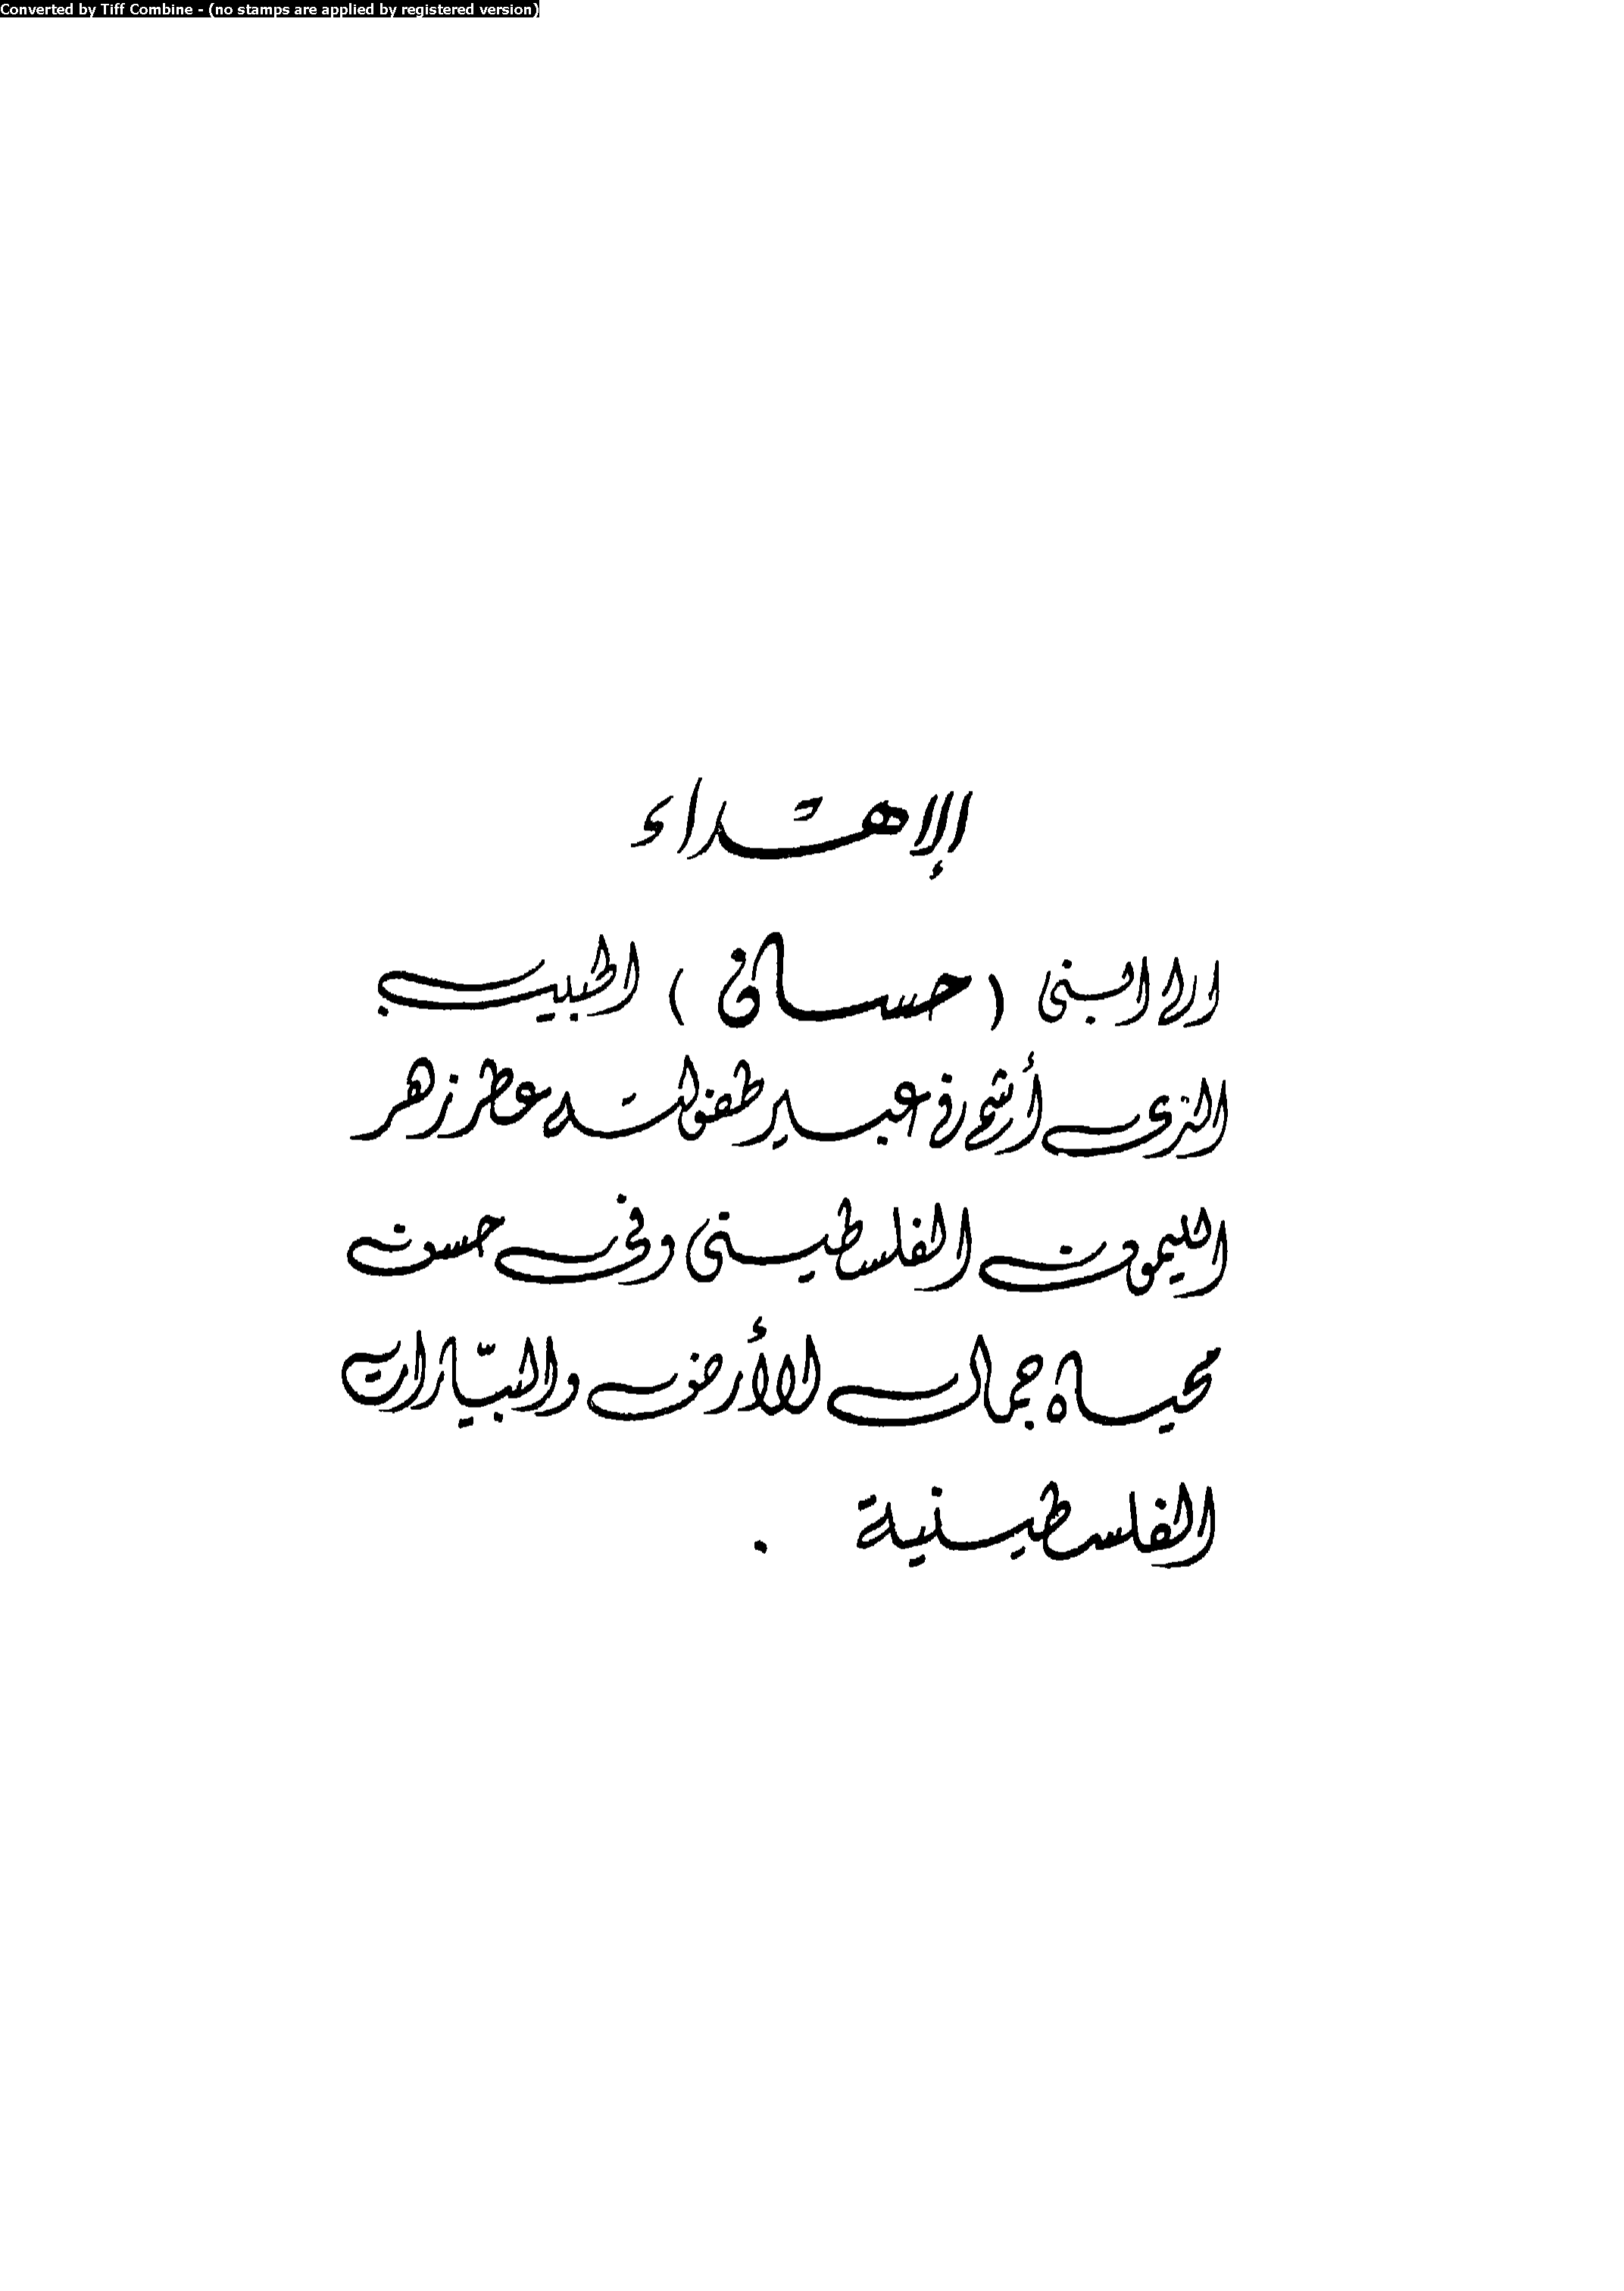 Converted by Tiff Combine - (no stamps are applied by registered version)
الإهتداء
إلى ابنى (حسان) الحبيب
الذى أشم فى عبير طفولته عطر زهر
الليمون الفلسطينى وفى حسن
محياه جمال الأرض والبيّارات
الفلسطينية .